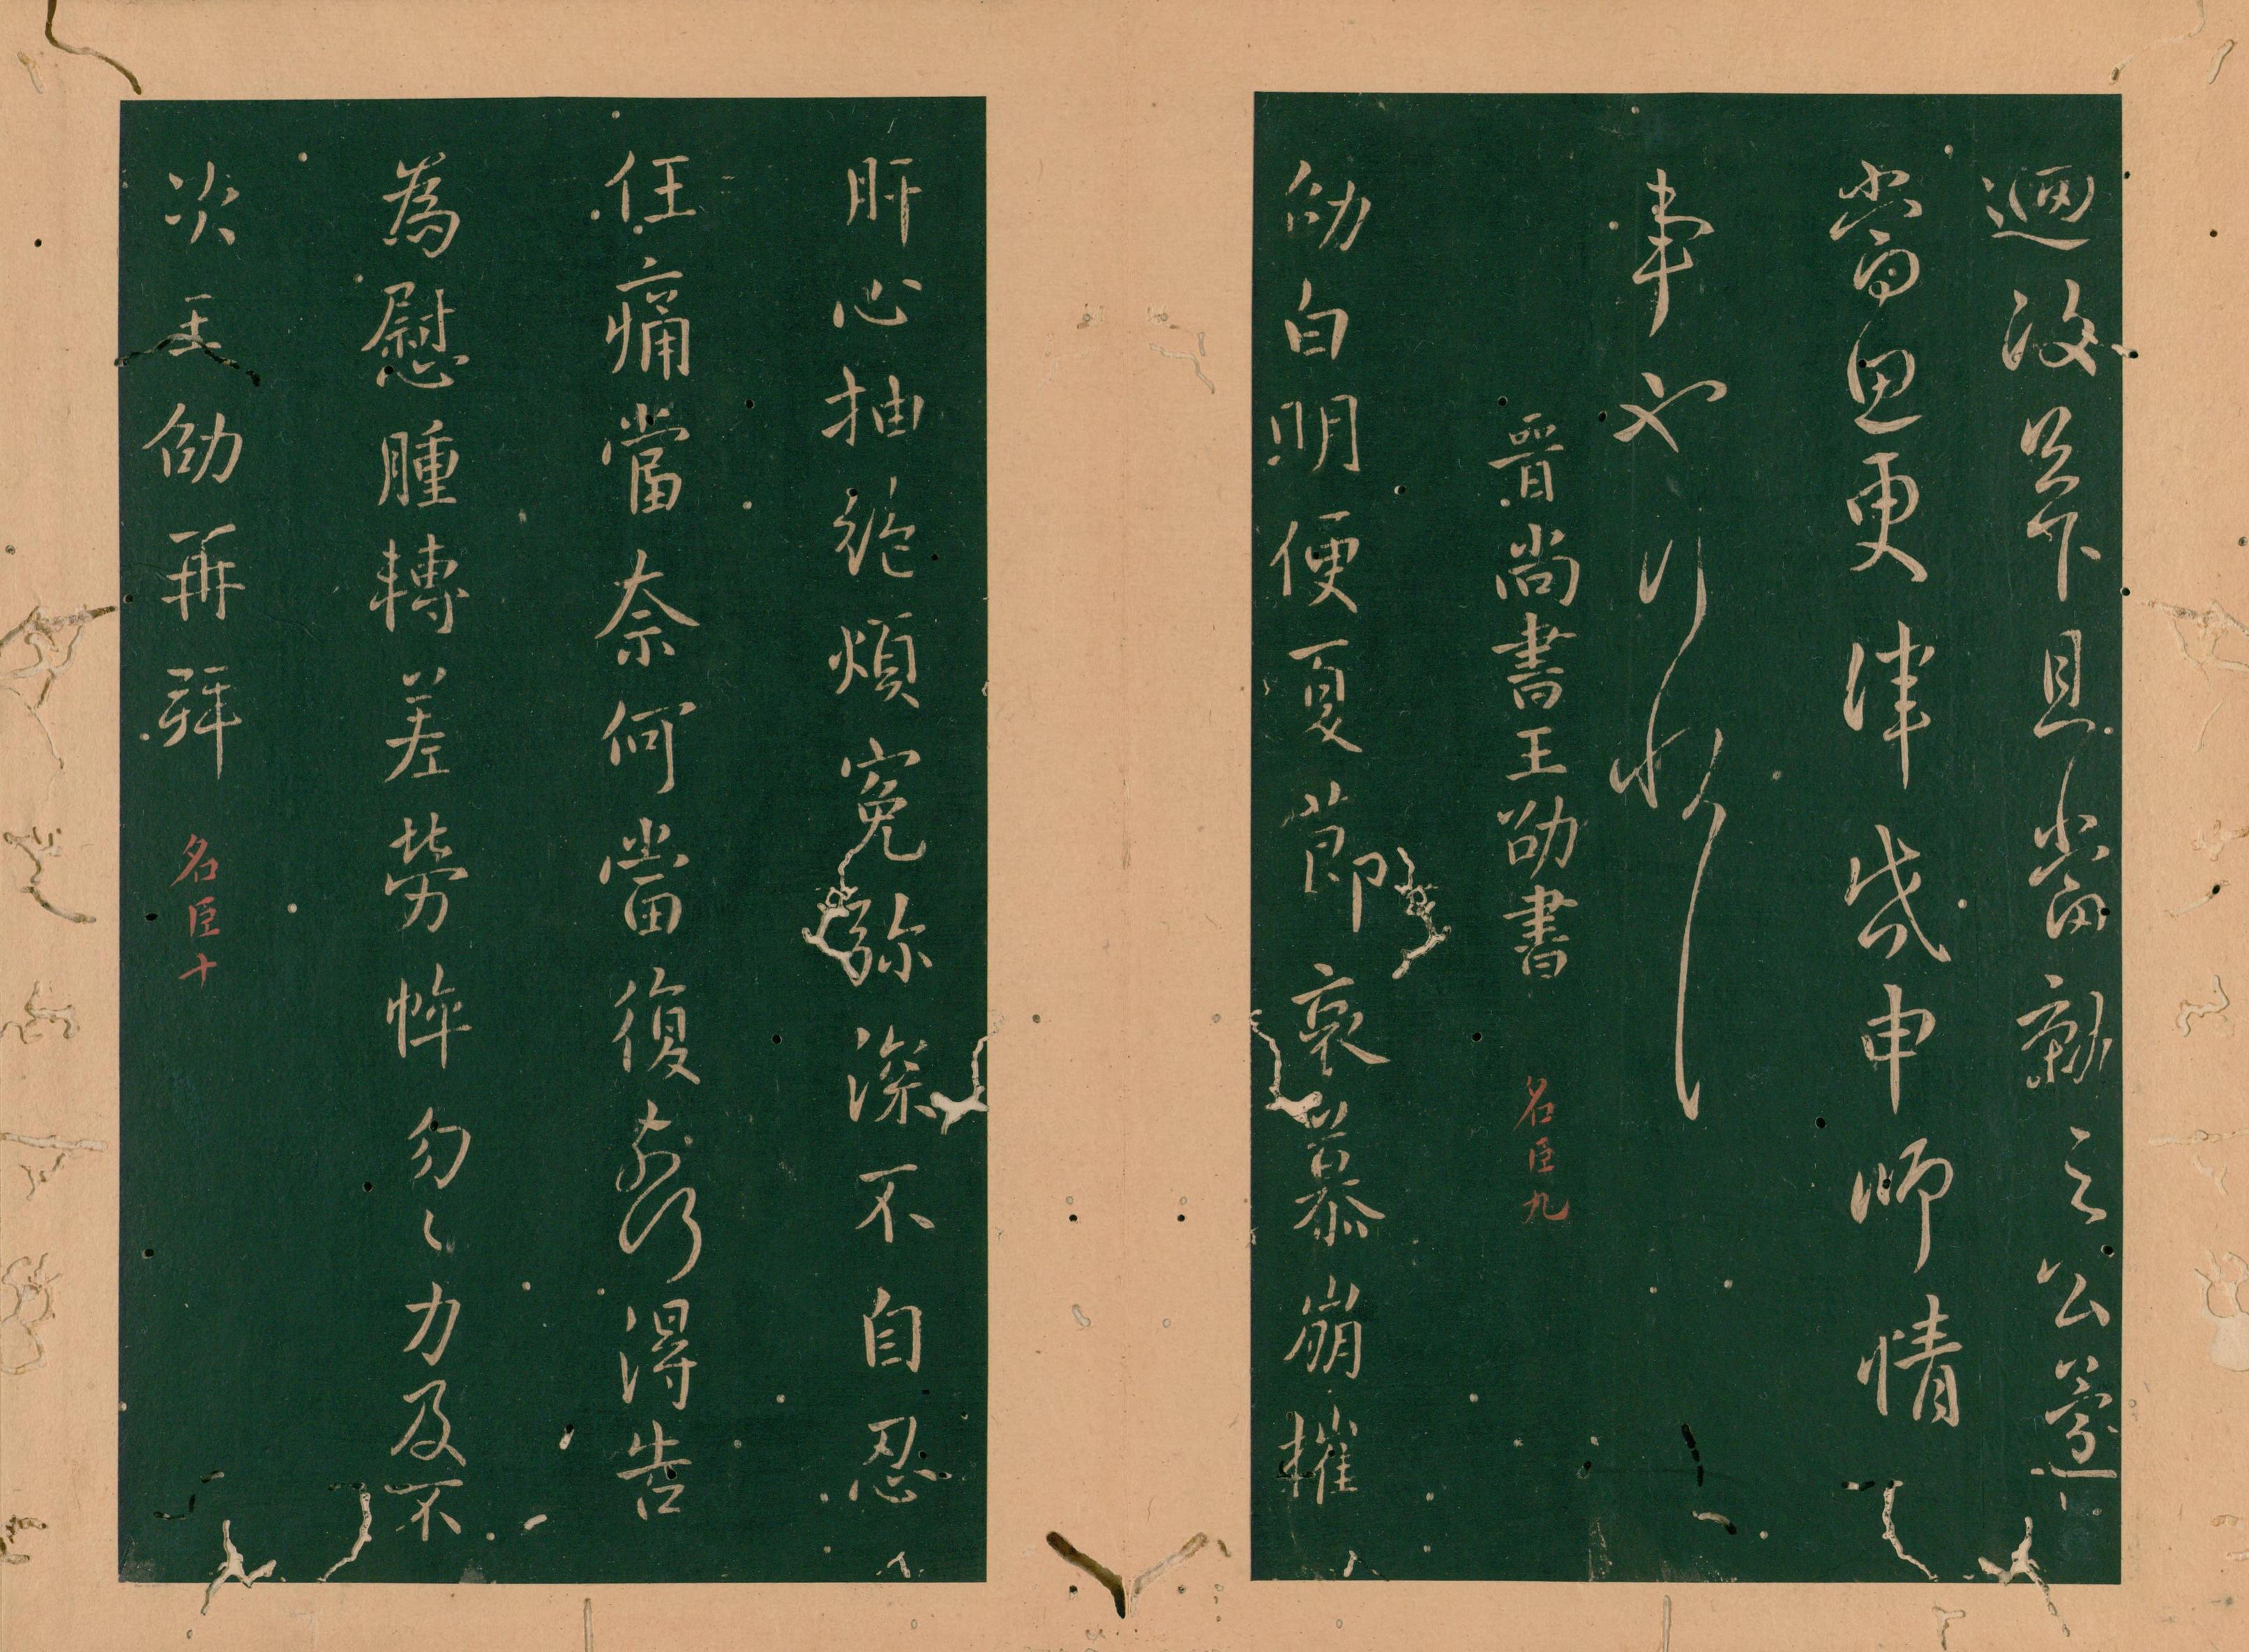 迴改足下且當勸之公
當思更律申師情
事也
晉尚書王劭書
名臣九
劭白明便夏節哀慕崩摧
肝心抽絶煩冤弥深不自忍
任痛當奈何當復奈何得告
為慰腫轉差勞悴勿〻力及不
次王劭再拜
名臣十